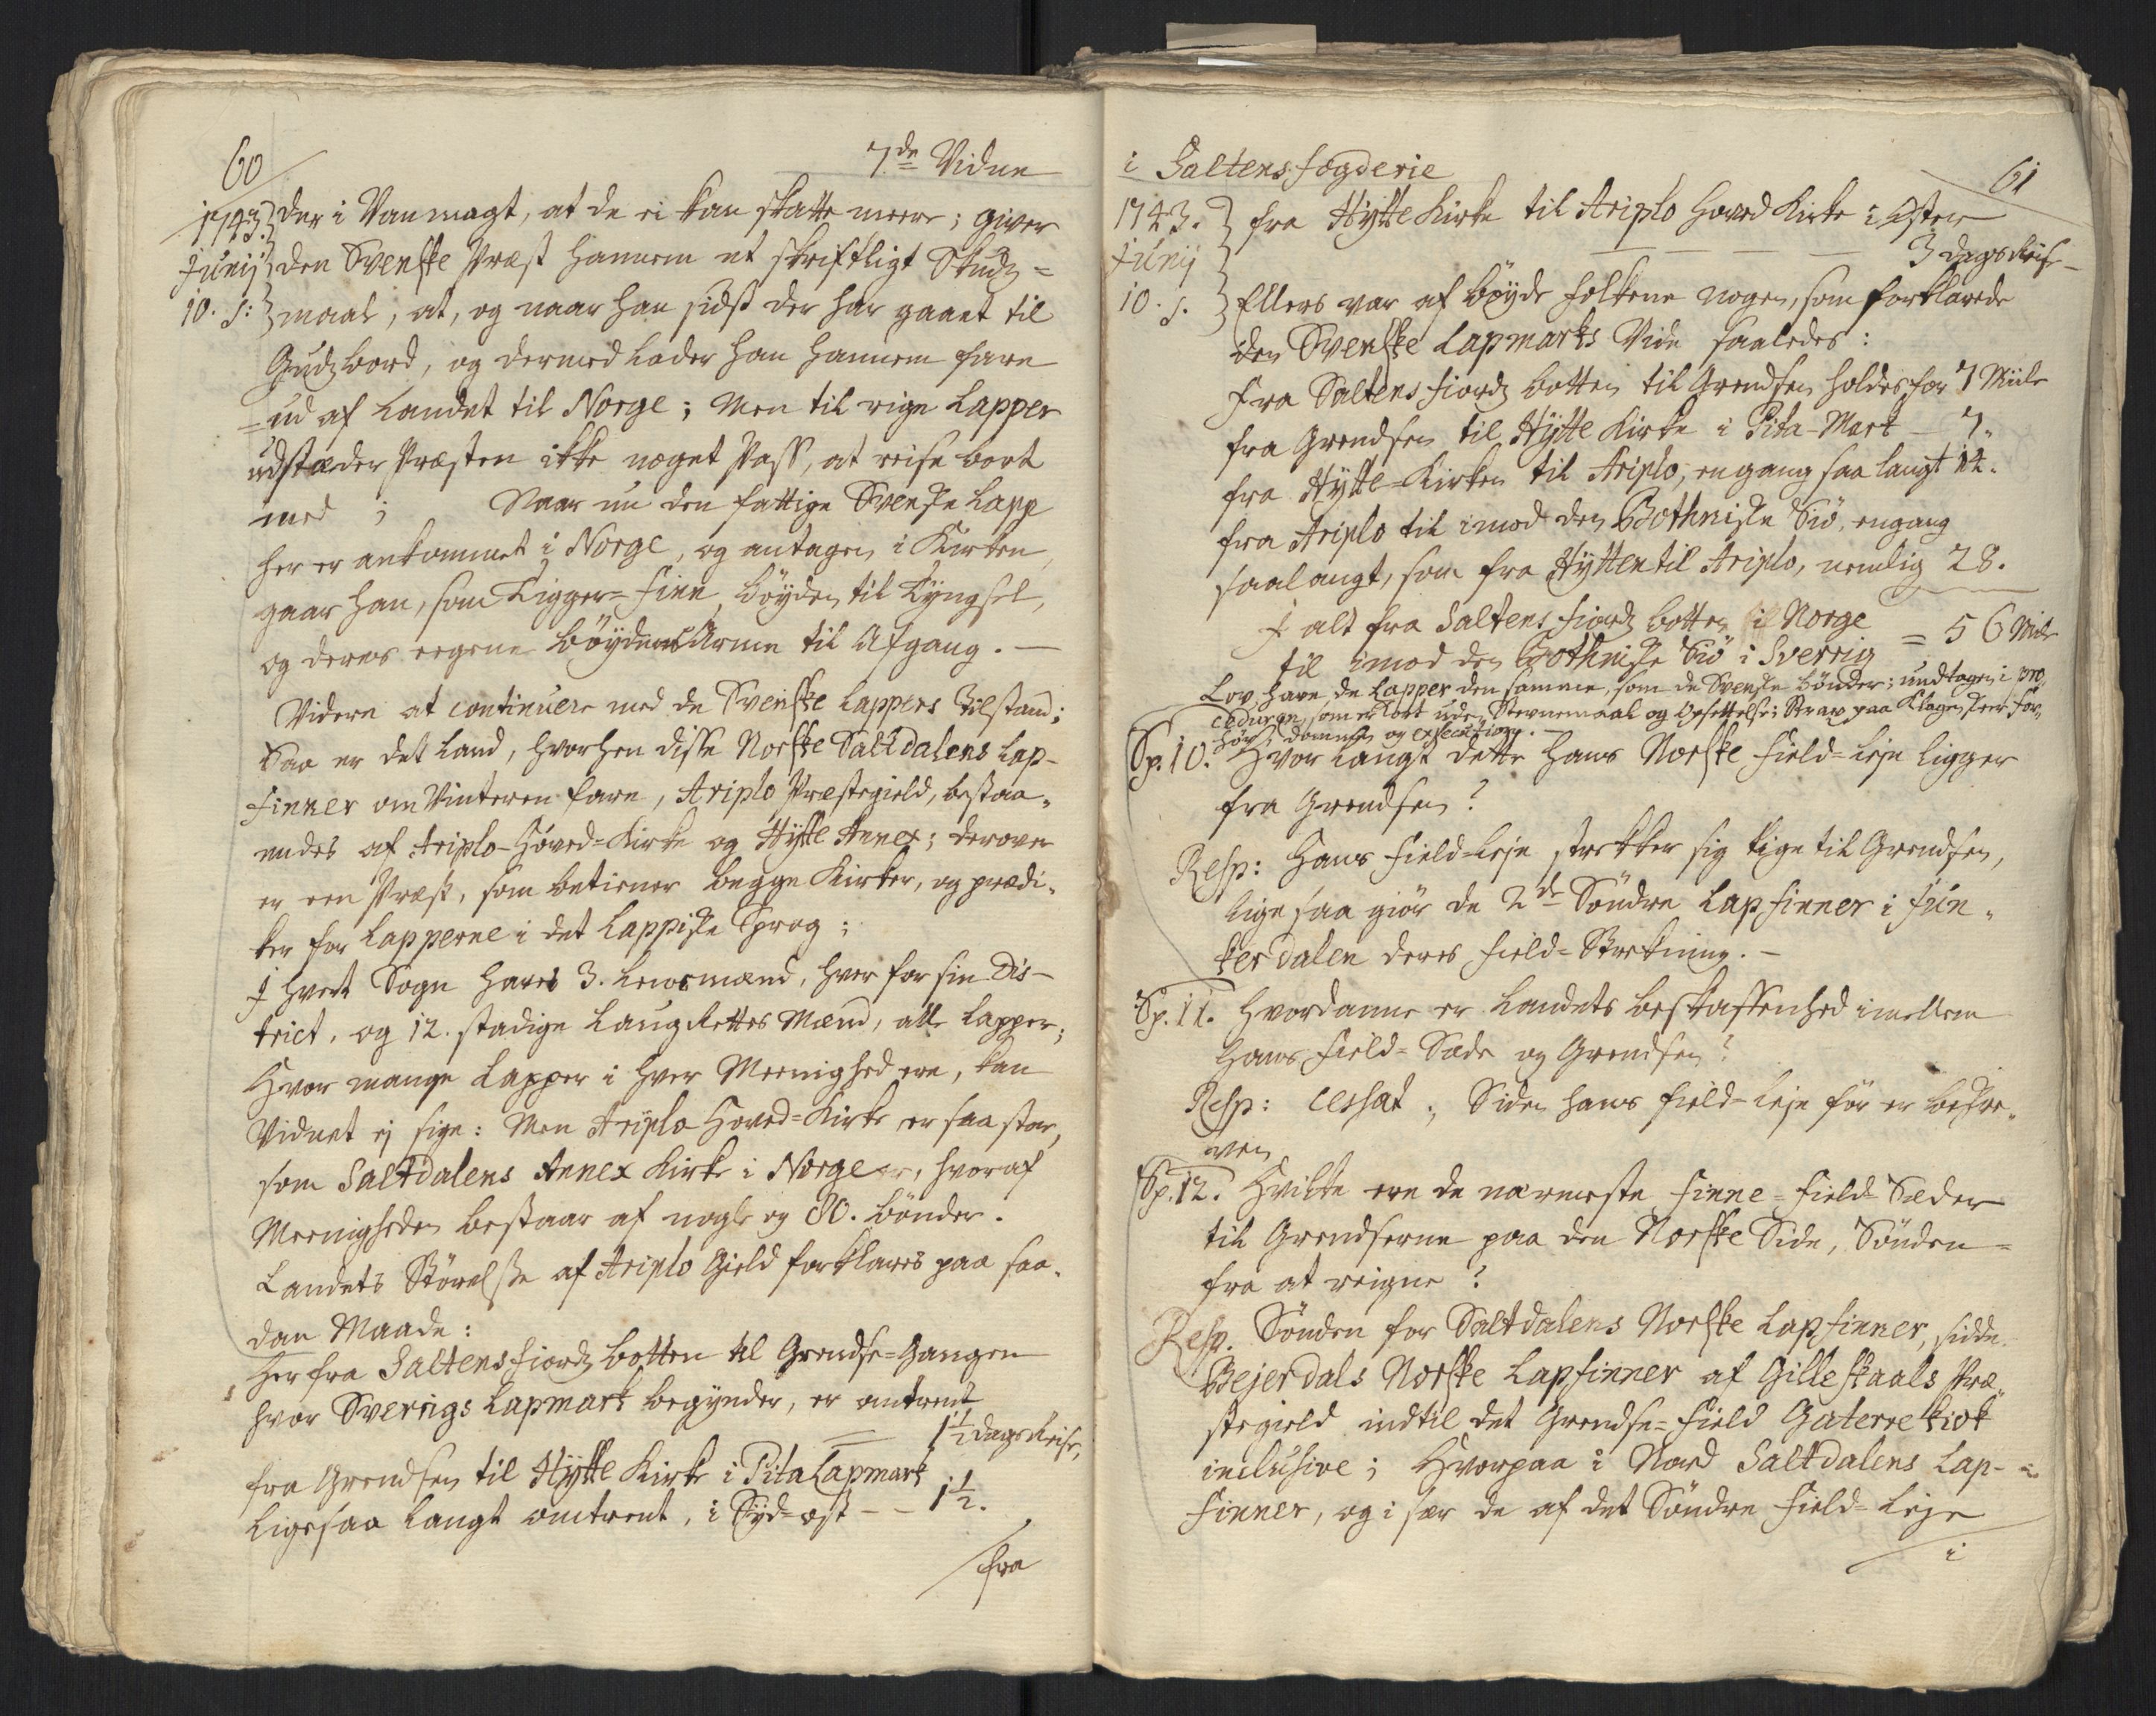 60
7de Vidne
1743.
Junij
10. s:
der i Vanmagt, at de ei kan skatte meere; giver
den Svenske Præst hannem et skriftligt Skuds=
maal, at, og naar han sidst der har gaaet til
Gudz bord, og dermed lader han hannem fare
=ud af Landet til Norge; Men til rige Lapper
udstæder Præsten ikke noget Pass, at reise bort
med; Naar nu den fattige Svenske Lapp
her er ankommet i Norge, og antagen i Kirken,
gaar han, som Tigger=Finn, Bøyden til Tyngsel,
og deres eegene bøydens Arme til Afgang. —
Videre at continuere med de Svenske Lappers Tilstand;
Saa er det Land, hvorhen disse Norske Saltdalens Lap-
Finner om Vinteren fare, Ariplo Præstegield, bestaa-
endes af Ariplo-Hoved=Kirke og Hytte Annex; derover
er een Præst, som betiener begge Kirker, og prædi-
ker for Lapperne i det Lappiske Sprog;
I hvert Sogn haves 3. Lensmænd, hver for sin Dis-
trict, og 12. stadige LaugRettes Mænd, alle Lapper;
Hvor mange Lapper i hver Meenighed ere, kan
Vidnet ej sige: Men Ariplo Hoved=Kirke er saa stor,
som Saltdalens Annex Kirke i Norge er, hvoraf
Meenigheden bestaar af nogle og 80. bønder.
Landets Størelsse af Ariplo Gield forklares paa saa-
dan Maade:
Her fra Saltens fiordz botten til Grendse=Gangen
hvor Sverrigs Lapmark begynder, er omtrent
= 1½ dags Reise,
fra Grendsen til Hytte Kirke i Pita Lapmark
ligesaa langt omtrent, i Syd-ost — — 1½.
fra
i Saltens fogderie
61
1743.
Junij
10. s.
fra Hytte Kirke til Ariplo Hoved Kirke i Øster
— — — — 3 dags Reise —
Ellers var af bøyde folkene nogen, som forklarede
den Svenske Lapmarks Vide saaledes:
Fra Saltens fiordz botten til Grendsen holdes for 7 Miile
fra Grendsen til Hytte Kirke i Pita-Mark — 7.
fra Hytte-Kirken til Ariplo, engang saa langt 14.
fra Ariplo til imod den Bothniske Siö, engang
saalangt, som fra Hytten til Ariplo, nemlig 28.
I alt fra Saltens fiordz botten i Norge
til imod den Bothniske Siö i Sverrig = 56 Miile
Lov, have de Lapper den samme, som de Svenske bønder; undtagen i pro-
ceduren, som er kort uden Stevnemaal og Opsettelse; Strax paa Klagen skeer for-
hør, dommen og execution. —
Sp. 10. Hvor langt dette hans Norske Field=Leje ligger
fra Grendsen?
Resp: Hans Field-Leje strekker sig lige til Grendsen,
lige saa giør de 2de Søndre Lapfinner i Jun-
kerdalen deres Field=Strekning. —
Sp. 11. Hvordanne er Landets beskaffenhed imellem
hans Field=Sæde og Grendsen?
Resp: Cessat; Siden hans Field-Leje før er beskre-
ven
Sp. 12. Hvilke ere de nærmeste Finne=Field-Sæder
til Grendserne paa den Norske Side, Sønden=
fra at reigne?
Resp. Sønden for Saltdalens Norske Lapfinner, sidde
Bejerdals Norske Lapfinner af Gilleskaals Præ-
stegield indtil det Grendse=Field Gaterrekiok
inclusive; Hvorpaa i Nord Saltdalens Lap-
Finner, og i sær de af det Søndre Field=Leje
i